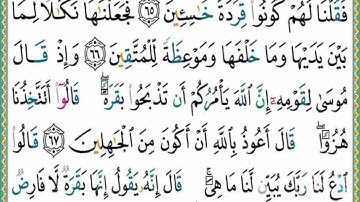 فَقُلْنَا لَهُمْ كُونُوا۟ قِرَدَةً خَـٰسِـِٔينَ ﴿٦٥﴾ فَجَعَلْنَـٰهَا نَكَـٰلًا لِّمَا
بَيْنَ يَدَيْهَا وَمَا خَلْفَهَا وَمَوْعِظَةً لِّلْمُتَّقِينَ ﴿٦٦﴾ وَإِذْ قَالَ
مُوسَىٰ لِقَوْمِهِۦٓ إِنَّ ٱللَّهَ يَأْمُرُكُمْ أَن تَذْبَحُوا۟ بَقَرَةً ۖ قَالُوٓا۟ أَتَتَّخِذُنَا
هُزُوًا ۖ قَالَ أَعُوذُ بِٱللَّهِ أَنْ أَكُونَ مِنَ ٱلْجَـٰهِلِينَ ﴿٦٧﴾ قَالُوا۟
ٱدْعُ لَنَا رَبَّكَ يُبَيِّن لَّنَا مَا هِىَ ۚ قَالَ إِنَّهُۥ يَقُولُ إِنَّهَا بَقَرَةٌ لَّا فَارِضٌ